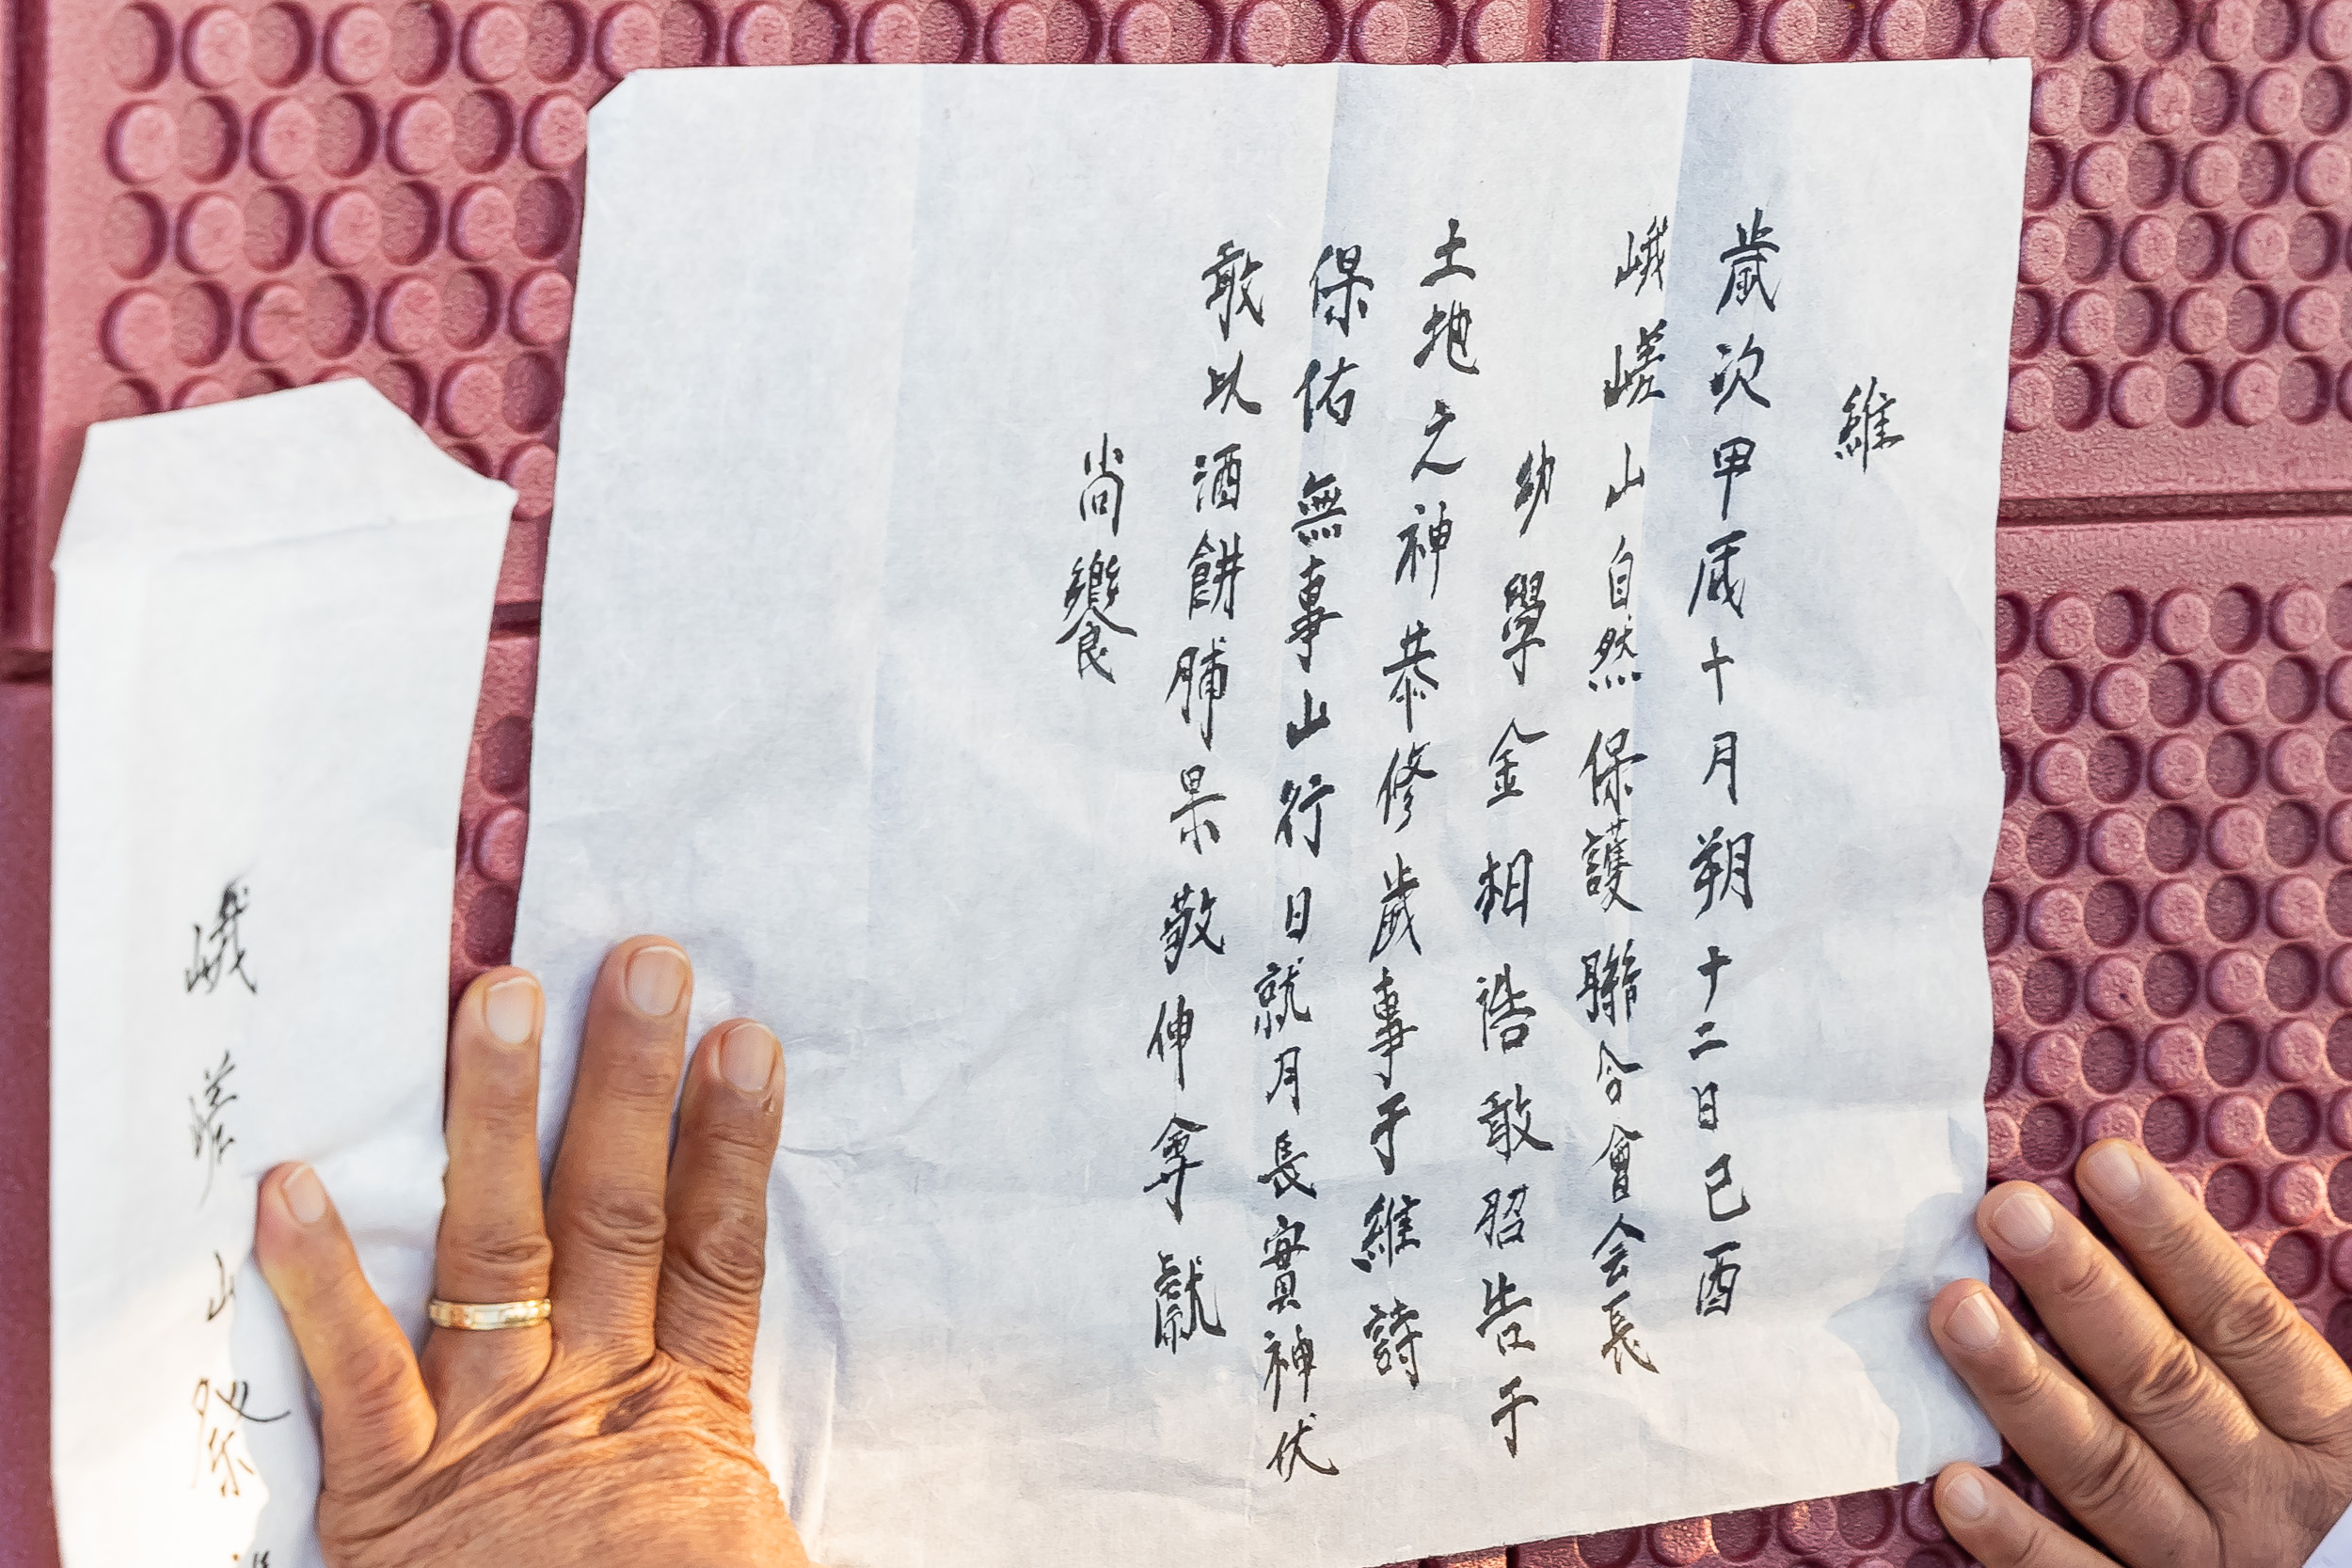 維
歲次甲辰十月朔十二日己酉
峨嵯山自然保護聯合會会長
幼學金相祰敢昭告于
土地之神恭修歲事于維詩
保佑無事山行日就月長實神伏
敢以酒餠脯果敬伸奠獻
尙饗
峨嵯山祭